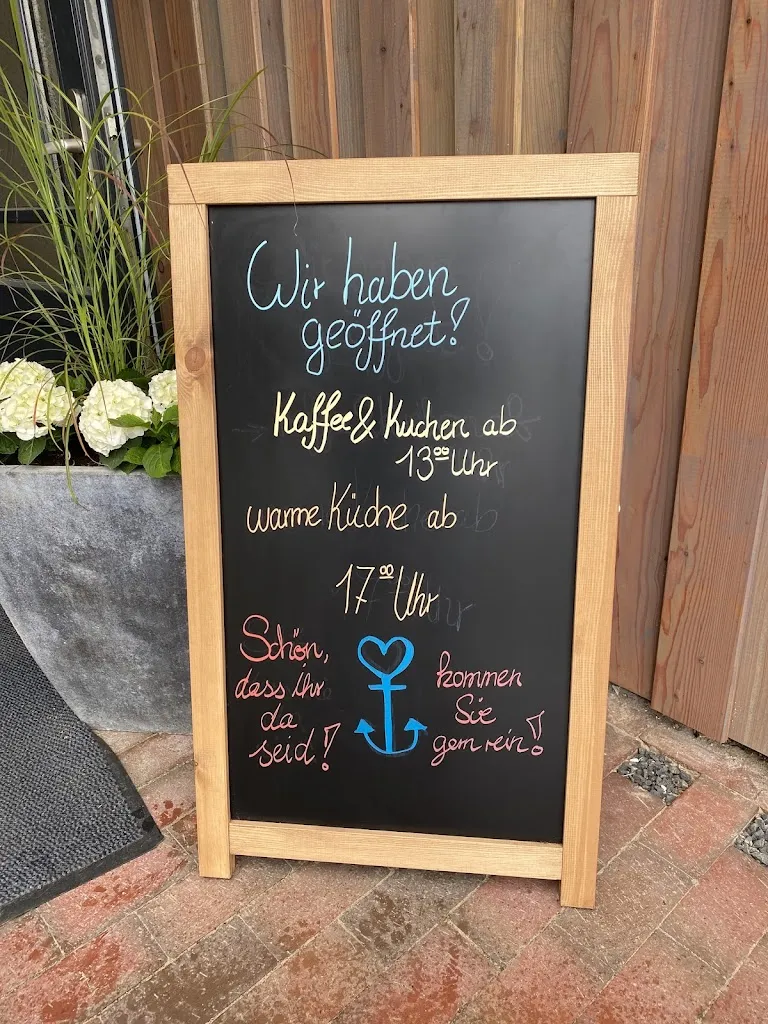 Wir haben
geöffnet!
Kaffee & Kuchen ab
13⁰⁰ Uhr
warme Küche ab
17⁰⁰ Uhr
Schön,
dass ihr
da
seid!
kommen
Sie
gern rein!